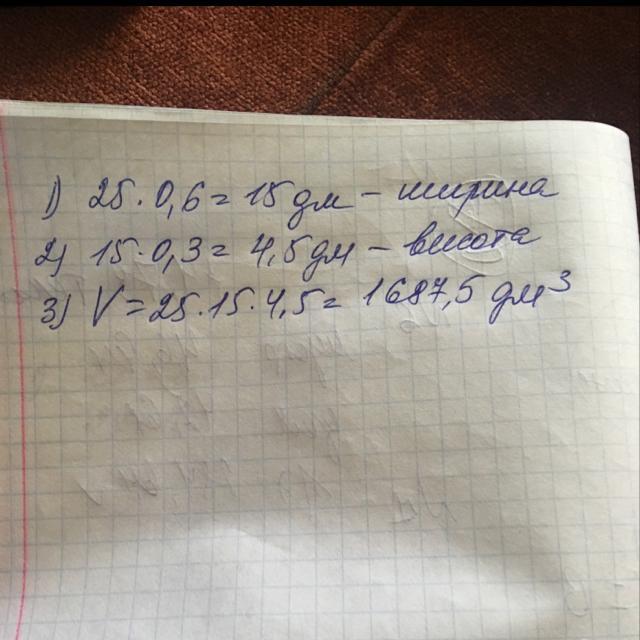 1) 25·0,6=15 дм – ширина
2) 15·0,3=4,5 дм – висота
3) V=25·15·4,5=1687,5 дм³